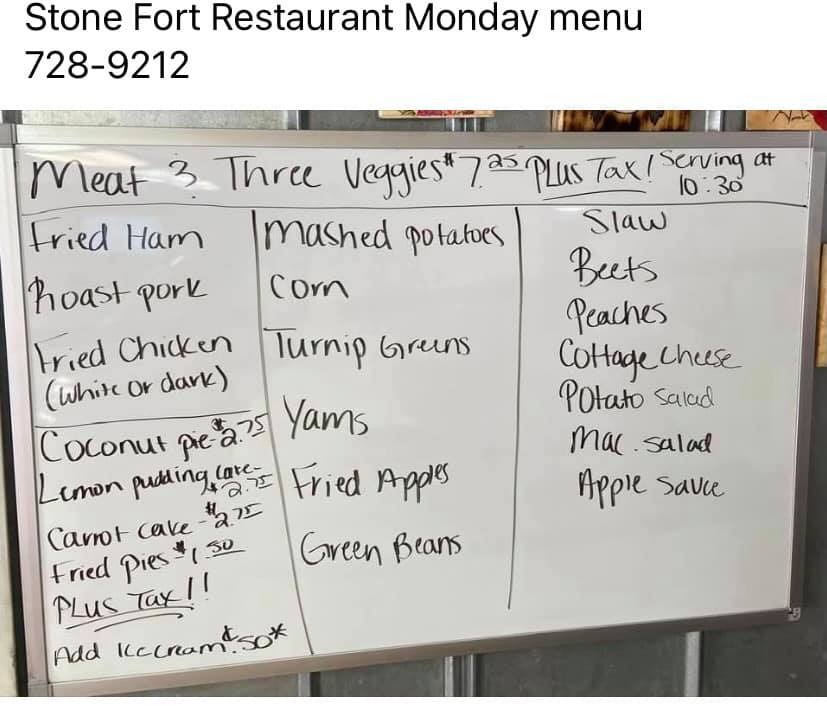 Stone Fort Restaurant Monday menu
728-9212
Meat 3 Three Veggies $7.25 PLUS Tax! Serving at 10:30
Fried Ham
Roast pork
Fried Chicken
(White or dark)
Coconut pie-$2.75
Lemon pudding cake-
$2.75
Carrot cake-$2.75
Fried pies $1.50
PLUS Tax!!
Add Ice cream $.50*
Mashed potatoes
Corn
Turnip Greens
Yams
Fried Apples
Green Beans
Slaw
Beets
Peaches
Cottage Cheese
Potato Salad
Mac. salad
Apple Sauce